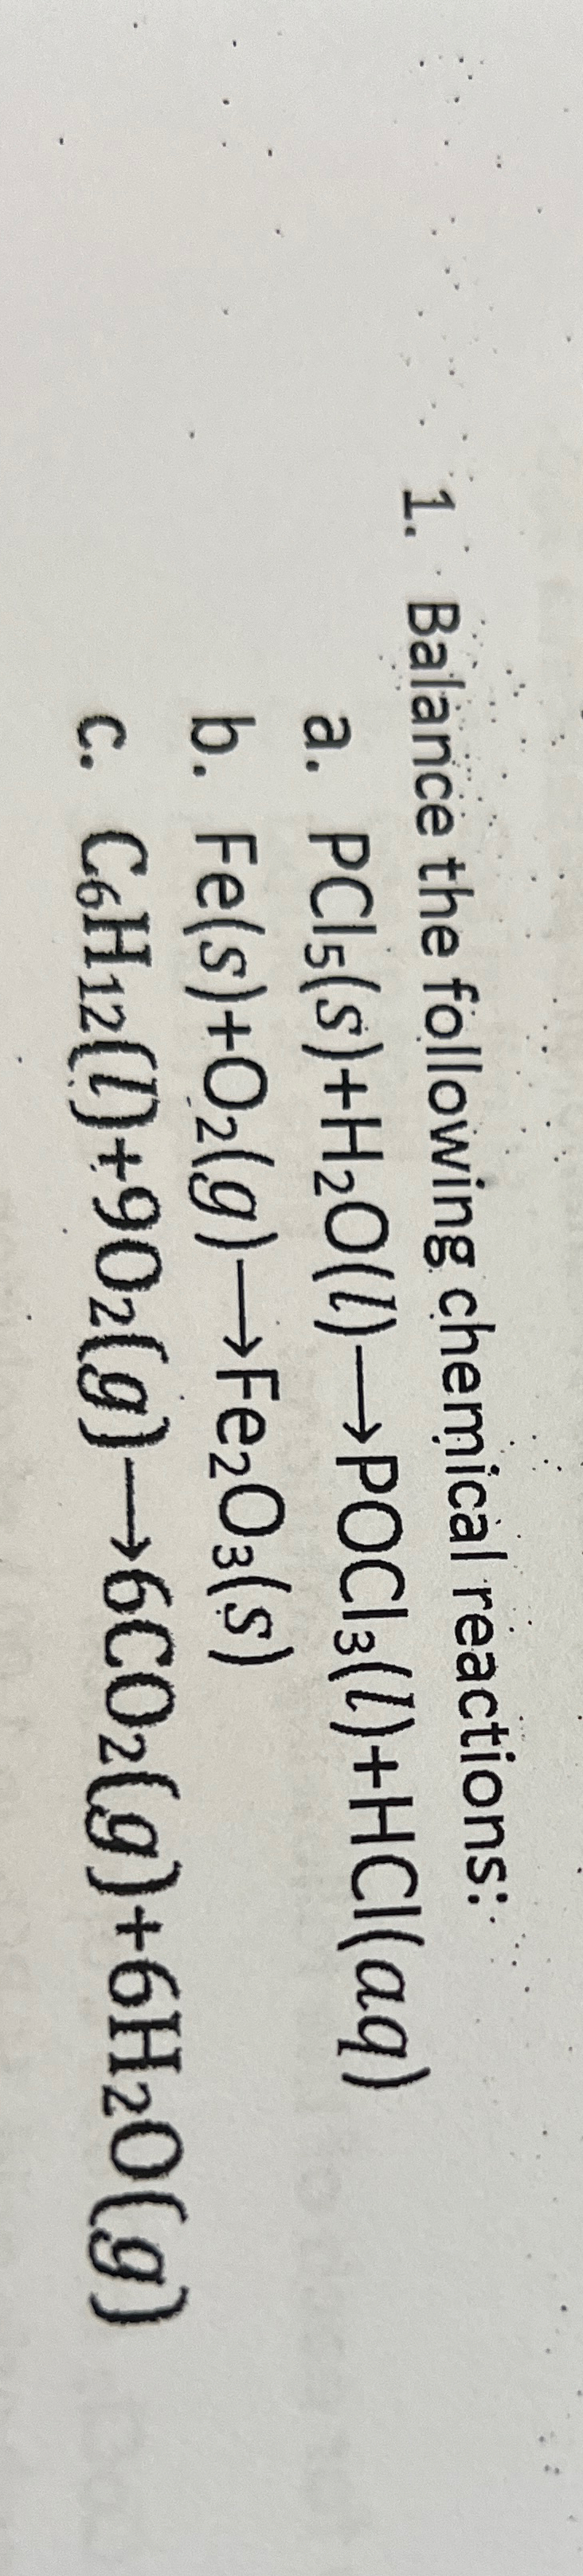 1. Balance the following chemical reactions:
a. PCl₅(s)+H₂O(l)→POCl₃(l)+HCl(aq)
b. Fe(s)+O₂(g)→Fe₂O₃(s)
c. C₆H₁₂(l)+9O₂(g)→6CO₂(g)+6H₂O(g)